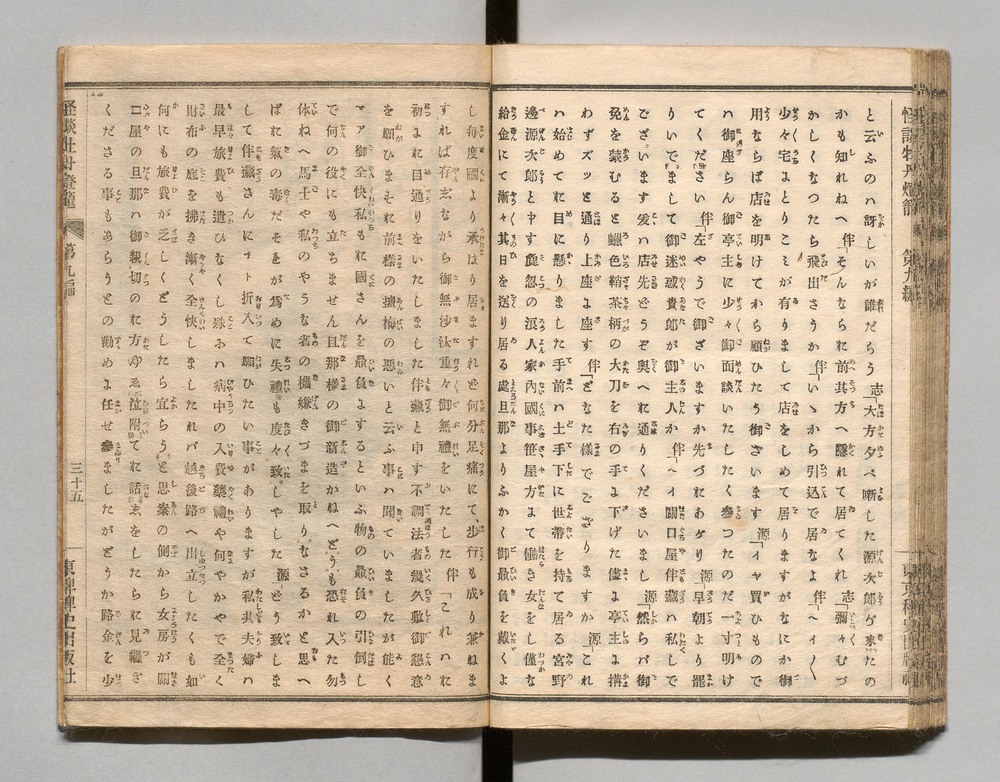 怪談牡丹燈籠 第九編
東京稗史出版社
と云ふのハ訝しいが誰だらう 志「大方夕べ噺した源次郎ゲ來たの
かも知れねへ 伴「そんならに前其方へ隱れて居てくれ 志「彌々むづ
かしくなつたら飛出さうか 伴「いゝから引込で居なよ 伴「ヘイ〳〵
少々宅よとりこミが有りまして店をしめて居りますがなにか御
用ならば店を明けてから願ひたう御ざいます 源「イヤ買ひもので
ハ御座らん御亭主に少々御面談いたしたく參つたのだ一寸明け
てください 伴「左やうで御ざいますか先づにあがり 源「早朝より罷
りいでまして御迷惑貴郎が御主人か 伴「ヘイ關口屋伴藏ハ私しで
ございます爰ハ店先どうぞ奧へに通りくださいまし 源「然らバ御
免を蒙むると蠟色鞘茶柄の大刀を右の手よ下げた儘よ亭主よ搆
わずズッと通り上座よ座す 伴「どなた樣でござりますか 源「これ
ハ始めてに目に懸りました手前ハ土手下に世帶を持て居る宮野
邊源次郎と申す麁忽の浪人家内國事笹屋方まて働き女をし僅な
給金にて漸々其日を送り居る處旦那よりふかく御最負を戴くよ
し毎度國より承はり居ますれど何分足痛にて步行も成り兼ねま
すれば存玄ながら御無沙汰重々御無禮をいたした 伴「これハに
初よに目通りをいたしました伴藏と申す不調法者幾久敷御懇意
を願ひますに前樣の鹽梅の惡いと云ふ事ハ聞いていましたが能く
マア御全快私もに國さんを最負よするといふ物の最負の引倒し
で何の役にも立ちません旦那樣の御新造かねへどうも恐れ入た勿
体ねへ馬士や私のやうな者の機嫌きづまを取りなさるかと思へ
ばに氣の毒だそまが爲めに失禮も度々致しやした 源「どう致しま
して伴藏さんにチト折入て願ひたい事がありますが私共夫婦ハ
最早旅費も遣ひなくし殊よハ病中の入費藥禮や何やかやで全く
財布の底を拂き漸く全快しましたれバ越後路へ出立したくも如
何にも旅費が乏しくどうしたら宜らうと思案の側から女房が關
口屋の旦那ハ御親切のに方ゆゑ泣附てに話ゑをしたらに見繼ぎ
くださる事もあらうとの勸めよ任せ參ましたがどうか路金を少
怪談牡丹燈籠 第九編
三十五
東京稗史出版社